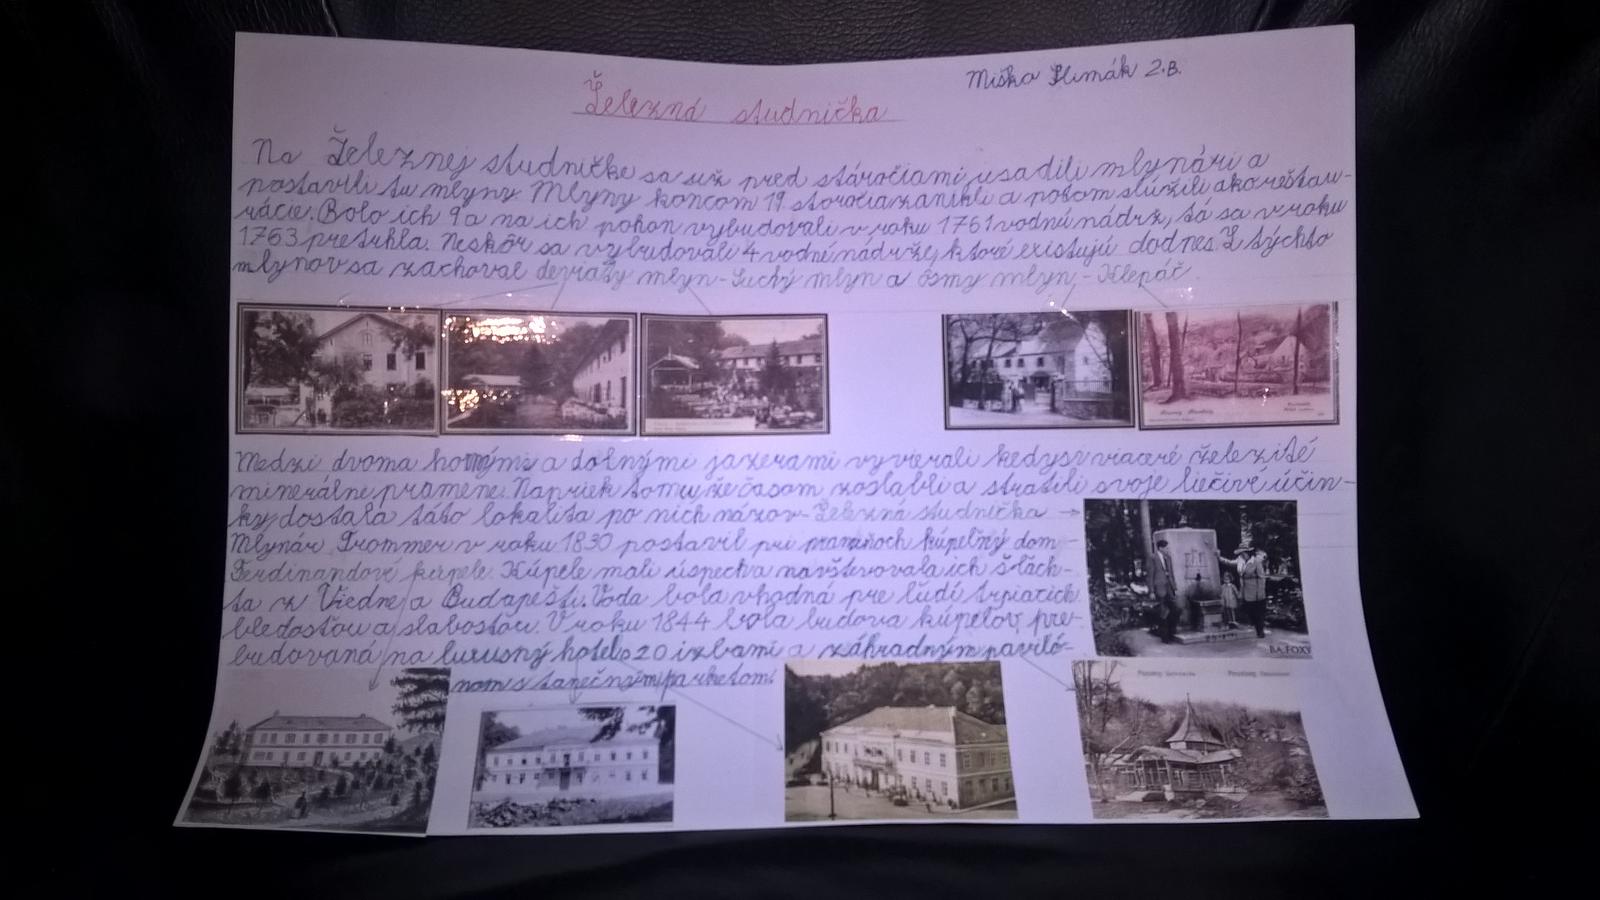 Miška Slimák 2.B.
Železná studnička
Na Železnej studničke sa už pred stáročiami usadili mlynári a
postavili tu mlyny. Mlyny koncom 19 storočia zanikli a potom slúžili ako reštau-
rácie. Bolo ich 9 a na ich pohon vybudovali v roku 1761 vodnú nádrž, tá sa v roku
1763 pretrhla. Neskôr sa vybudovali 4 vodné nádrže, ktoré existujú dodnes. Z týchto
mlynov sa zachoval deviaty mlyn - Suchý mlyn a ôsmy mlyn - Klepáč.
Medzi dvoma hornými a dolnými jazerami vyvierali kedysi viaceré železité
minerálne pramene. Napriek tomu, že časom zoslabli a stratili svoje liečivé účin-
ky dostala táto lokalita po nich názov - Železná studnička
Mlynár Frommer v roku 1830 postavil pri prameňoch kúpeľný dom -
Ferdinandové kúpele. Kúpele mali úspech a navštevovala ich šľach-
ta z Viedne a Budapešti. Voda bola vhodná pre ľudí trpiacich
bledosťou a slabosťou. V roku 1844 bola budova kúpeľov pre-
budovaná na luxusný hotel s 20 izbami a záhradným paviló-
nom s tanečným parketom.
BA.FOXY